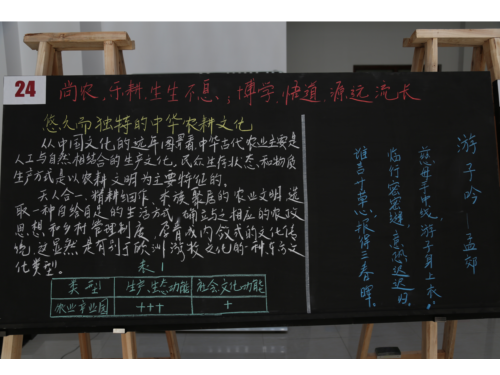 24
尚农,乐耕,生生不息,;博学,悟道,源远流长
悠久而独特的中华农耕文化
从中国文化的近年图景看,中华古代农业主要是
人工与自然相结合的生产文化,民众生存状态和物质
生产方式是以农耕文明为主要特征的。
天人合一、精耕细作、聚居的农业文明,选
取一种自给自足的生活方式,确立与之相应的农政
思想和乡村管理制度,孕育成内敛式的文化传
统,这显然是有别于欧洲游牧文化的一种东方文
化类型。
表1
类型 生产、生态功能 社会、文化功能
农业产业园 +++ +
游子吟—孟郊
慈母手中线,游子身上衣。
临行密密缝,意恐迟迟归。
谁言寸草心,报得三春晖。